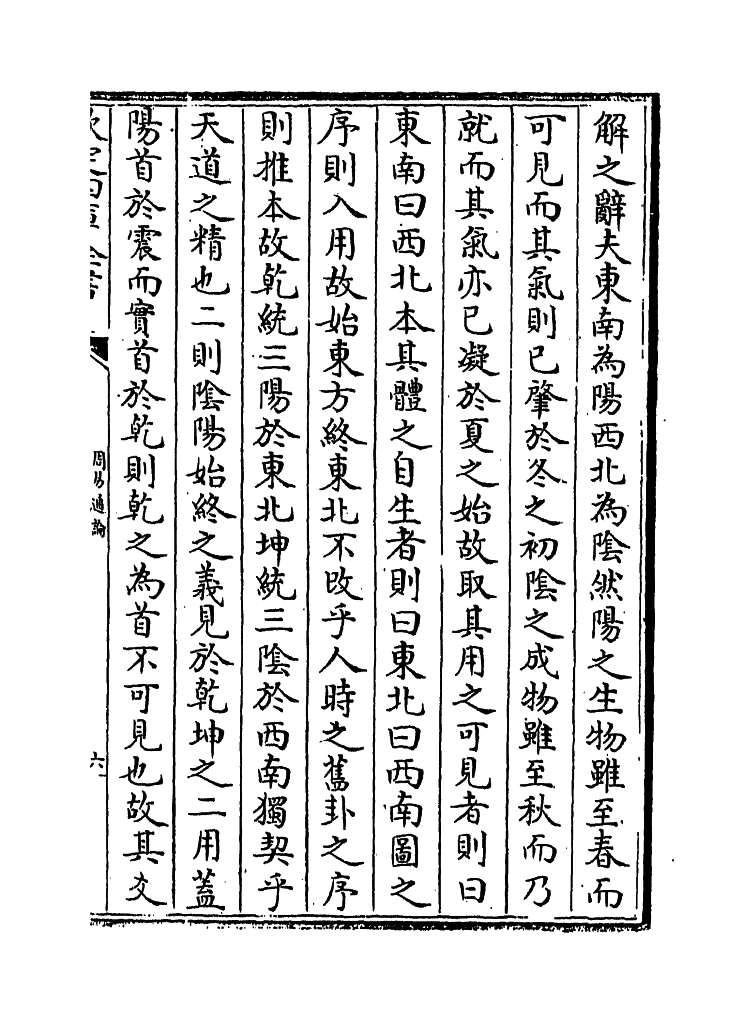 解之辭夫東南為陽西北為隂然陽之生物雖至春而
可見而其氣則已肇於冬之初隂之成物雖至秋而乃
就而其氣亦已凝於夏之始故取其用之可見者則曰
東南曰西北本其體之自生者則曰東北曰西南圖之
序則入用故始東方終東北不改乎人時之舊卦之序
則推本故乾統三陽於東北坤統三隂於西南獨契乎
天道之精也二則隂陽始終之義見於乾坤之二用蓋
陽首於震而實首於乾則乾之為首不可見也故其爻
周易通論
六